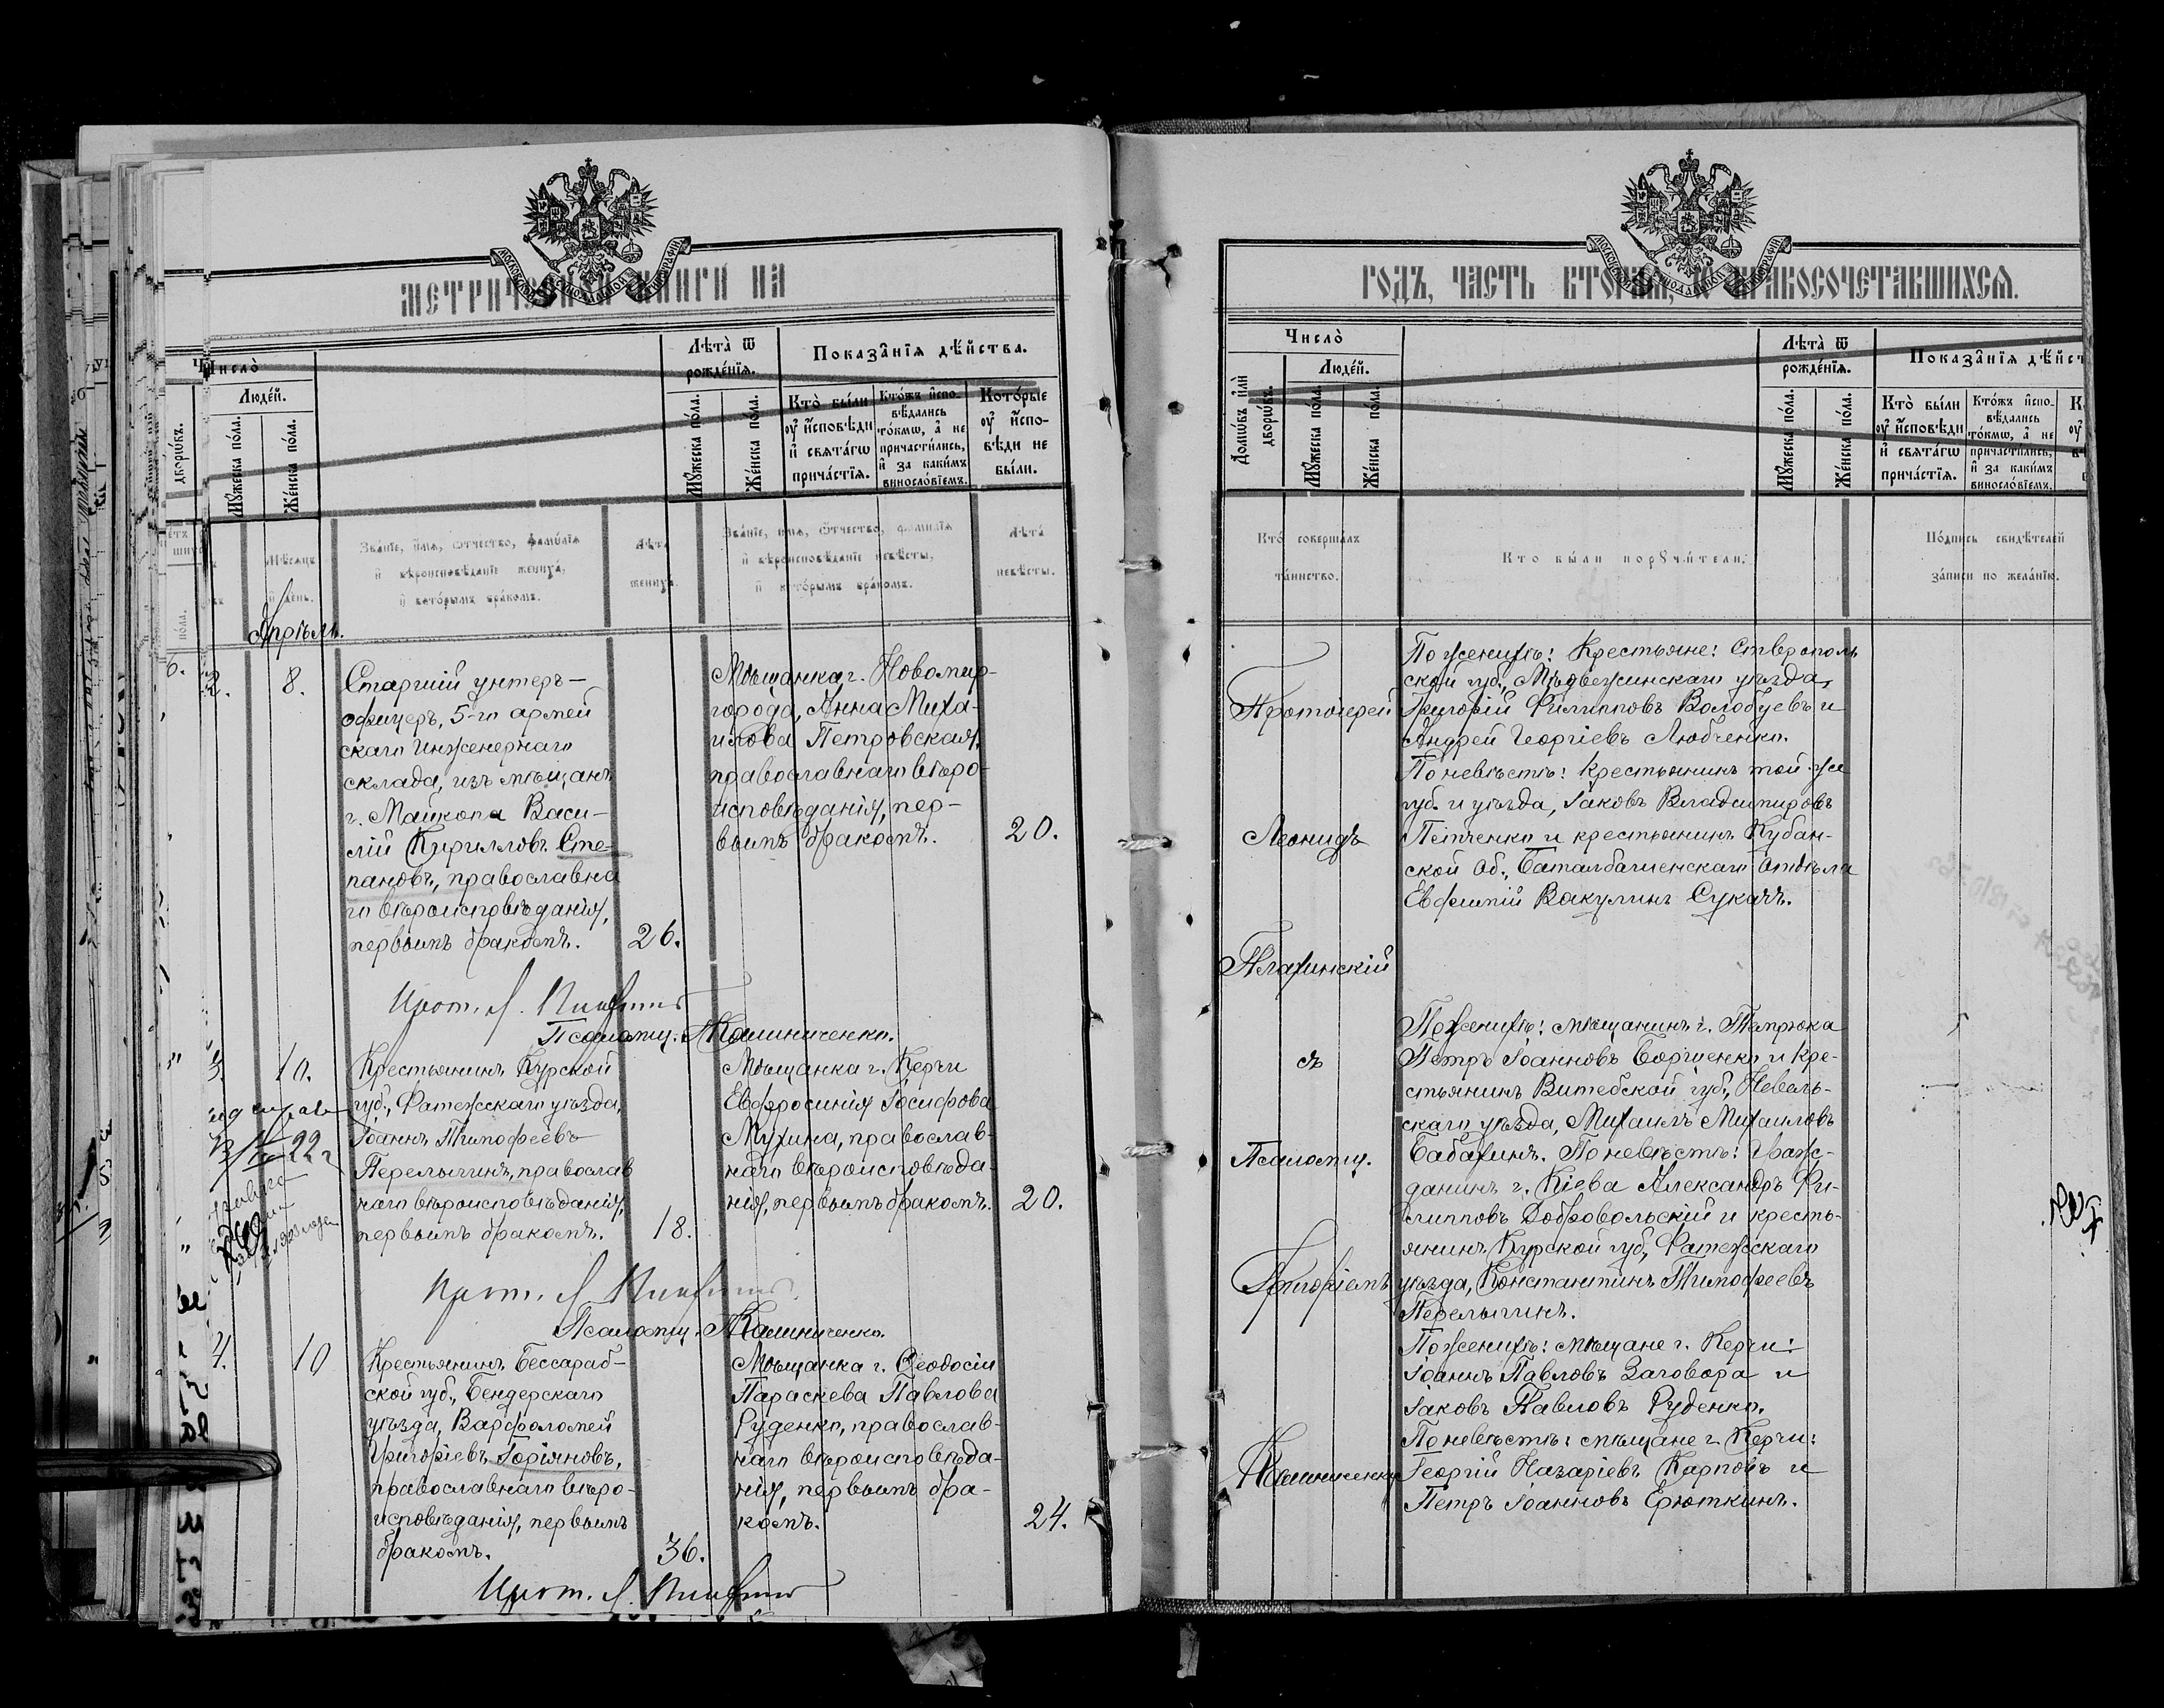 МЕТРИЧЕСКОЙ КНИГИ НА
Число̀
Люде́й.
дворѡ́въ.
Мꙋ́жеска по́ла.
Же́нска по́ла.
Лѣта̀ ѿ
рожде́нїѧ.
Мꙋ́жеска по́ла.
Же́нска по́ла.
Показа̑нїѧ дѣ́йства.
Кто̀ бы́ли
оу҆ и҆́сповѣди
и҆ свѧта́гѡ
прича́стїѧ.
Кто́жъ и҆спо-
вѣ́дались
то́кмѡ, а҆ не
причасти́лись,
и҆ за каки́мъ
винослѡ́вїемъ.
Кото́рые
оу҆ и҆́спо-
вѣди не
бы́ли.
Мѣ́сѧцъ
и҆ де́нь.
Зва́нїе, и҆́мѧ, ѻ҆́тчество, фами́лїѧ
и҆ вѣроисповѣ́данїе жениха̀,
и҆ кото́рымъ бра́комъ.
Лѣта̀
жениха̀.
Зва́нїе, и҆́мѧ, ѻ҆́тчество, фами́лїѧ
и҆ вѣроисповѣ́данїе невѣ́сты,
и҆ кото́рымъ бра́комъ.
Лѣта̀
невѣ́сты.
Апрѣль.
2.
8.
Старшій унтеръ-
офицеръ, 5-го армей
скаго Инженернаго
склада, изъ мѣщанъ
г. Майкопа Васи-
лій Кирилловъ Сте-
пановъ, православна
го вѣроисповѣданія,
первымъ бракомъ.
26.
Мѣщанка г. Новомир-
города, Анна Миха-
илова Петровская,
православнаго вѣро-
исповѣданія, пер-
вымъ бракомъ.
20.
Прот. Л.
Псаломщ. Калиниченко.
3.
10.
Крестьянинъ Курской
губ., Фатежскаго уѣзда,
Іоаннъ Тимофеевъ
Перелыгинъ, православ
наго вѣроисповѣданія,
первымъ бракомъ.
18.
Мѣщанка г. Керчи
Евфросинія Іосифова
Мухина, православ-
наго вѣроисповѣда-
нія, первымъ бракомъ.
20.
Прот. Л.
Псаломщ. Калиниченко.
4.
10
Крестьянинъ Бессараб-
ской губ., Бендерскаго
уѣзда, Варфоломей
Григоріевъ Горіяновъ,
православнаго вѣро-
исповѣданія, первымъ
бракомъ.
36.
Мѣщанка г. Ѳеодосіи
Параскева Павлова
Руденко, православ-
наго вѣроисповѣда-
нія, первымъ бра-
комъ.
24.
Прот. Л.
ГОДЪ, ЧАСТЬ ВТОРАѦ, Ѡ БРАКОСОЧЕТАВШИХСѦ.
Число̀
Домѡ́въ и҆лѝ
дворѡ́въ.
Люде́й.
Мꙋ́жеска по́ла.
Же́нска по́ла.
Лѣта̀ ѿ
рожде́нїѧ.
Мꙋ́жеска по́ла.
Же́нска по́ла.
Показа̑нїѧ дѣ́йст
Кто̀ бы́ли
оу҆ и҆́сповѣди
и҆ свѧта́гѡ
прича́стїѧ.
Кто́жъ и҆спо-
вѣ́дались
то́кмѡ, а҆ не
причасти́лись,
и҆ за каки́мъ
винослѡ́вїемъ.
Кто̀ соверша́лъ
та́инство.
Кто бы́ли порꙋчи́тели.
По́дпись свидѣ́телей
за́писи по жела́нїю.
Протоіерей
Леонидъ
Плахинскій
съ
Псаломщ.
Григоріемъ
Калиниченко
По женихѣ: Крестьяне: Ставрополь
ской губ., Медвеженскаго уѣзда,
Григорій Филипповъ Волобуевъ и
Андрей Георгіевъ Любченко.
По невѣстѣ: крестьянинъ той-же
губ. и уѣзда, Іаковъ Владиміровъ
Петченко и крестьянинъ Кубан-
ской Об., Баталбашенскаго Отдѣла
Евфимій Вакулинъ Сукачъ.
По женихѣ: мѣщанинъ г. Темрюка
Петръ Іоанновъ Борщенко и кре-
стьянинъ Витебской губ., Невель-
скаго уѣзда, Михаилъ Михаиловъ
Бабахинъ. По невѣстѣ: граж-
данинъ г. Кіева Александръ Фи-
липповъ Добровольскій и кресть-
янинъ Курской губ., Фатежскаго
уѣзда, Константинъ Тимофеевъ
Перелыгинъ.
По женихѣ: мѣщане г. Керчи:
Іоаннъ Павловъ Заговора и
Іаковъ Павловъ Руденко.
По невѣстѣ: мѣщане г. Керчи:
Георгій Назаріевъ Карповъ и
Петръ Іоанновъ Ерюткинъ.